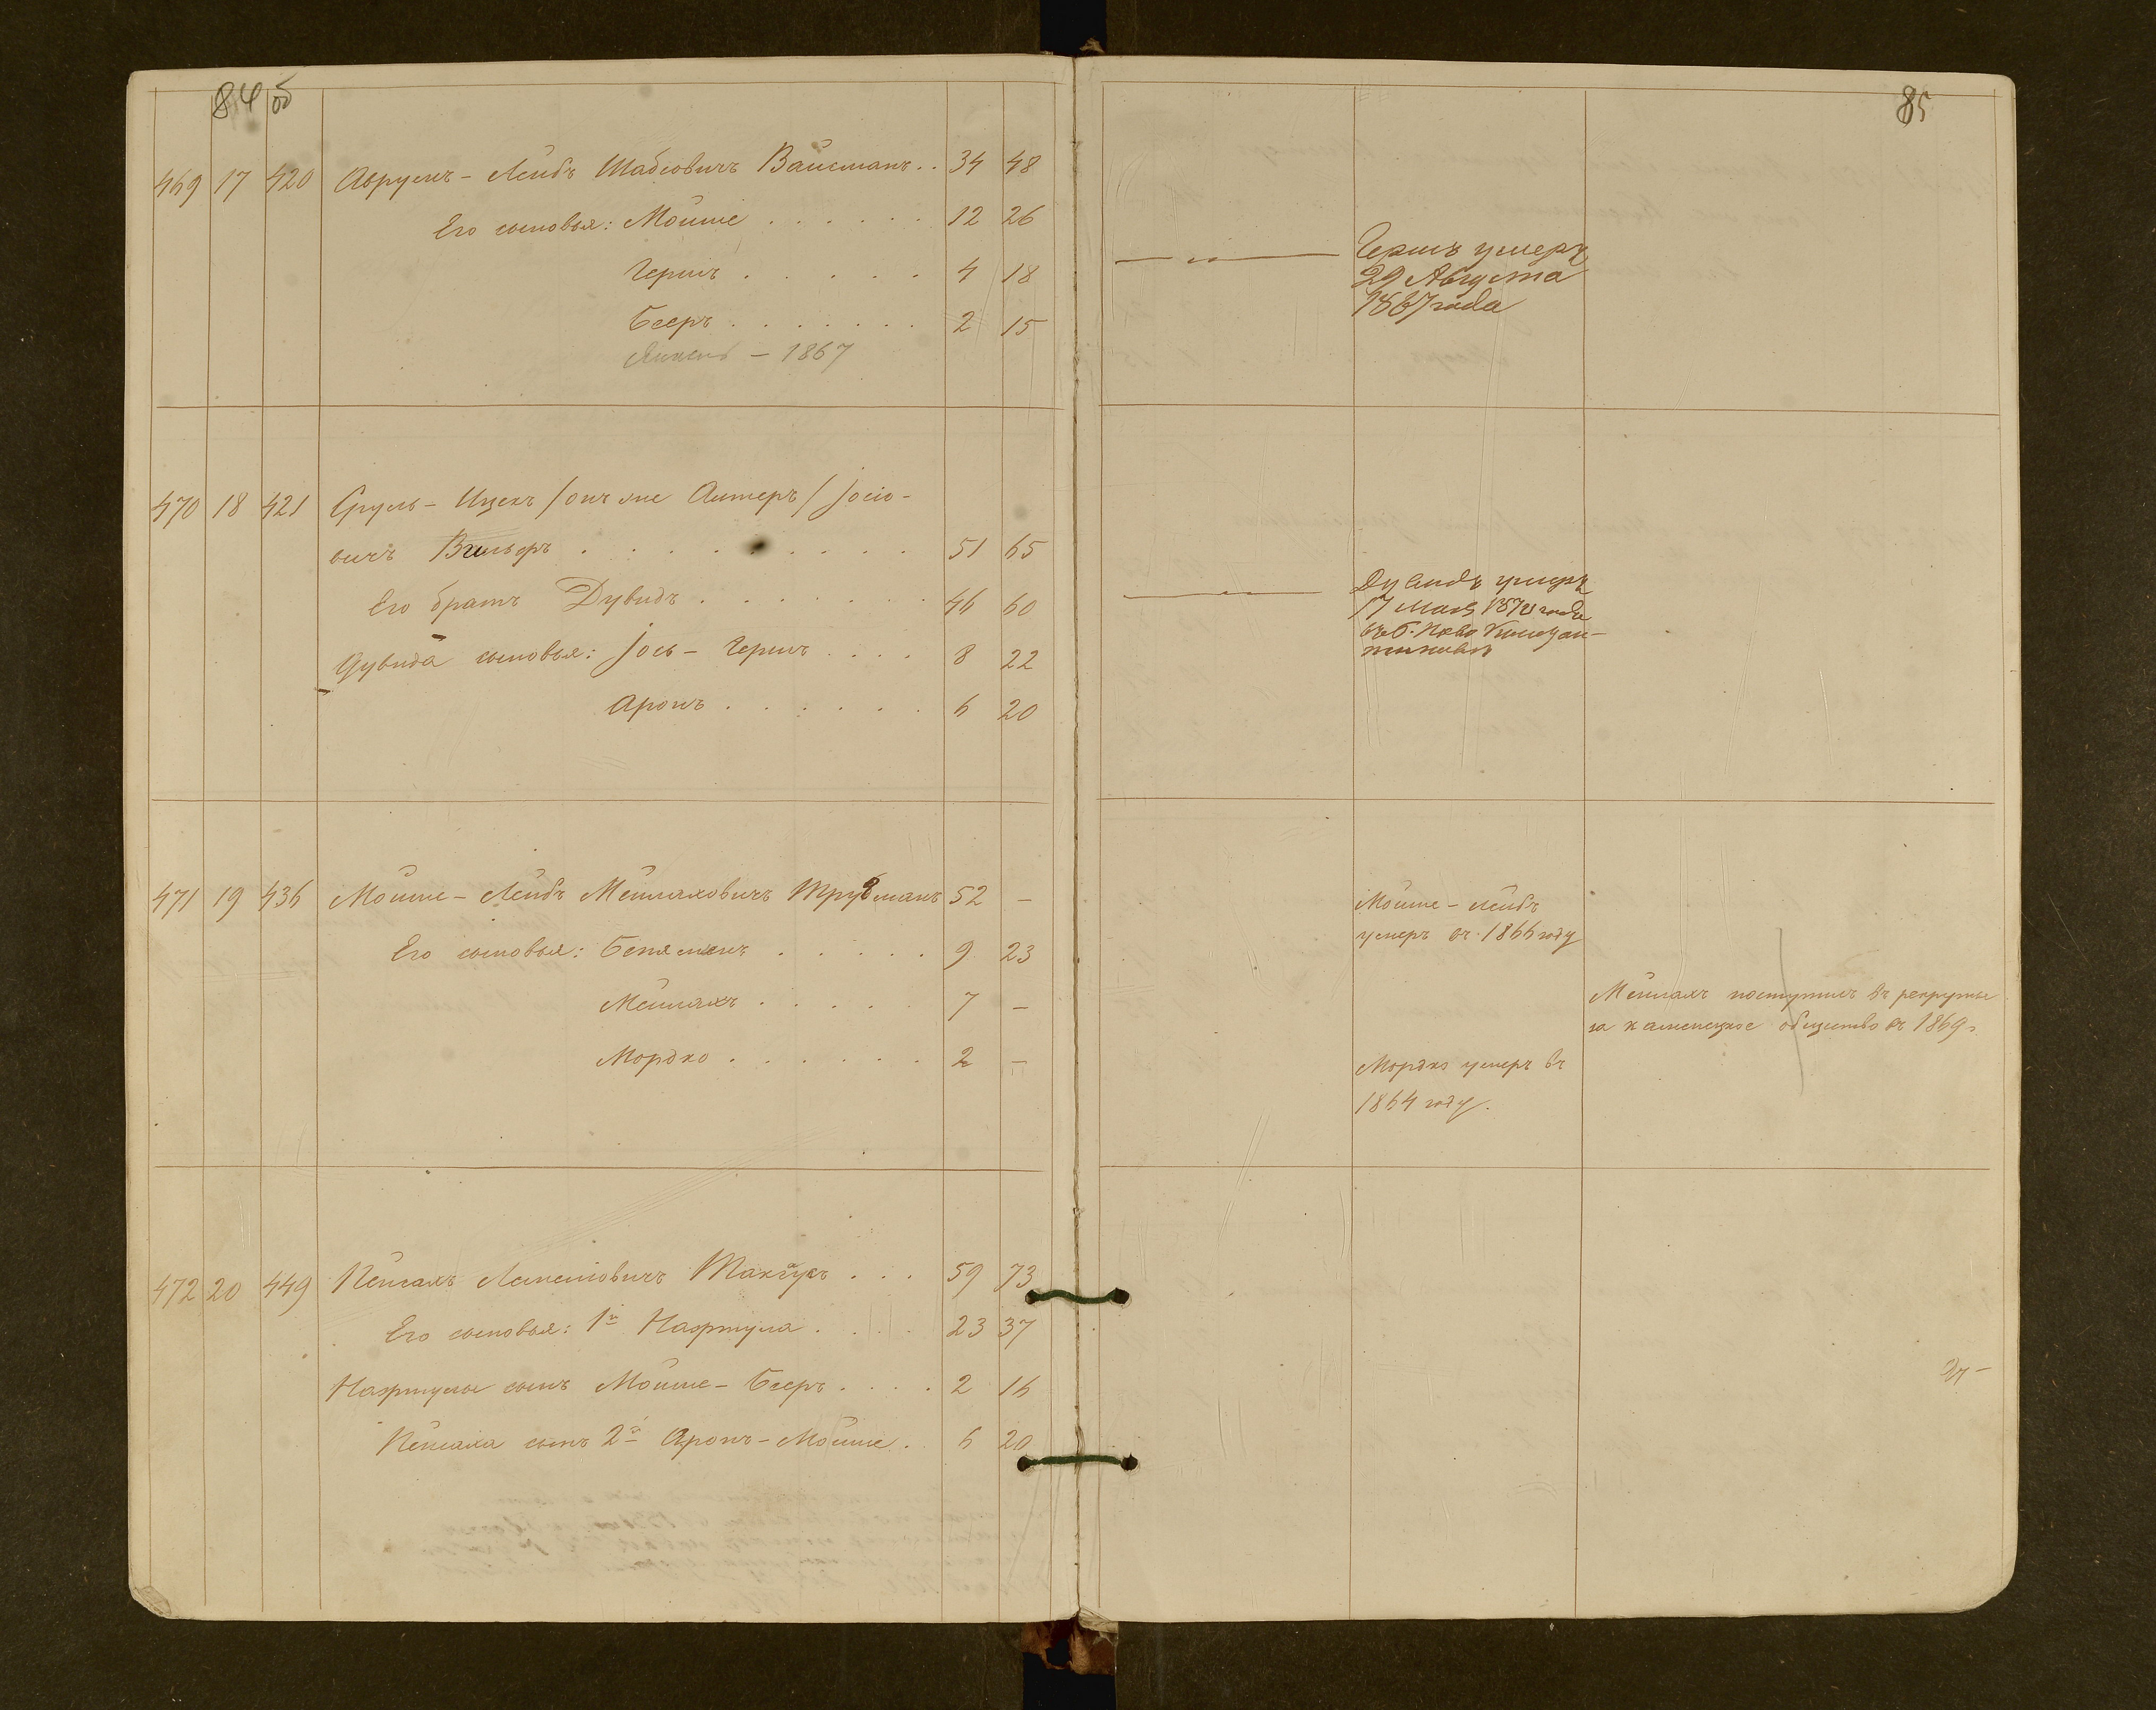 84 об
469 17 420 Аврумъ - Лейбъ Шабсовичъ Вайсманъ . . 34 48
Его сыновья: Мойше . . . . . . 12 26
Гершъ . . . . . . 4 18
Бееръ . . . . . . . 2 15
– 1867
470 18 421 Сруль - Ицекъ / онъ же Алтеръ / Іосіо-
вичъ Вильферъ . . . . . . . . . 51 65
Его братъ Дувидъ . . . . . . . 46 60
Дувида сыновья: Іось - Гершъ . . . . 8 22
Аронъ . . . . . . 6 20
471 19 436 Мойше - Лейбъ Мейлаховичъ Трубманъ 52 –
Его сыновья: Беняменъ . . . . . 9 23
Мейлахъ . . . . . 7 –
Мордко . . . . . . 2 –
472 20 449 Пейсахъ Лейповичъ . . . 59 73
Его сыновья: 1й Нафтула . . . . 23 37
Нафтулы сынъ Мойше - Бееръ . . . . 2 16
Пейсаха сынъ 2й Аронъ - Мойше . 6 20
85
Гершъ умеръ
29 Августа
1867 года
Дувидъ умеръ
17 Мая года
Константи-
Мойше - Лейбъ
умеръ въ 1866 году
Мейлахъ поступилъ въ рекруты
за каменецкое общество въ 1869 г.
Мордко умеръ въ
1864 году.